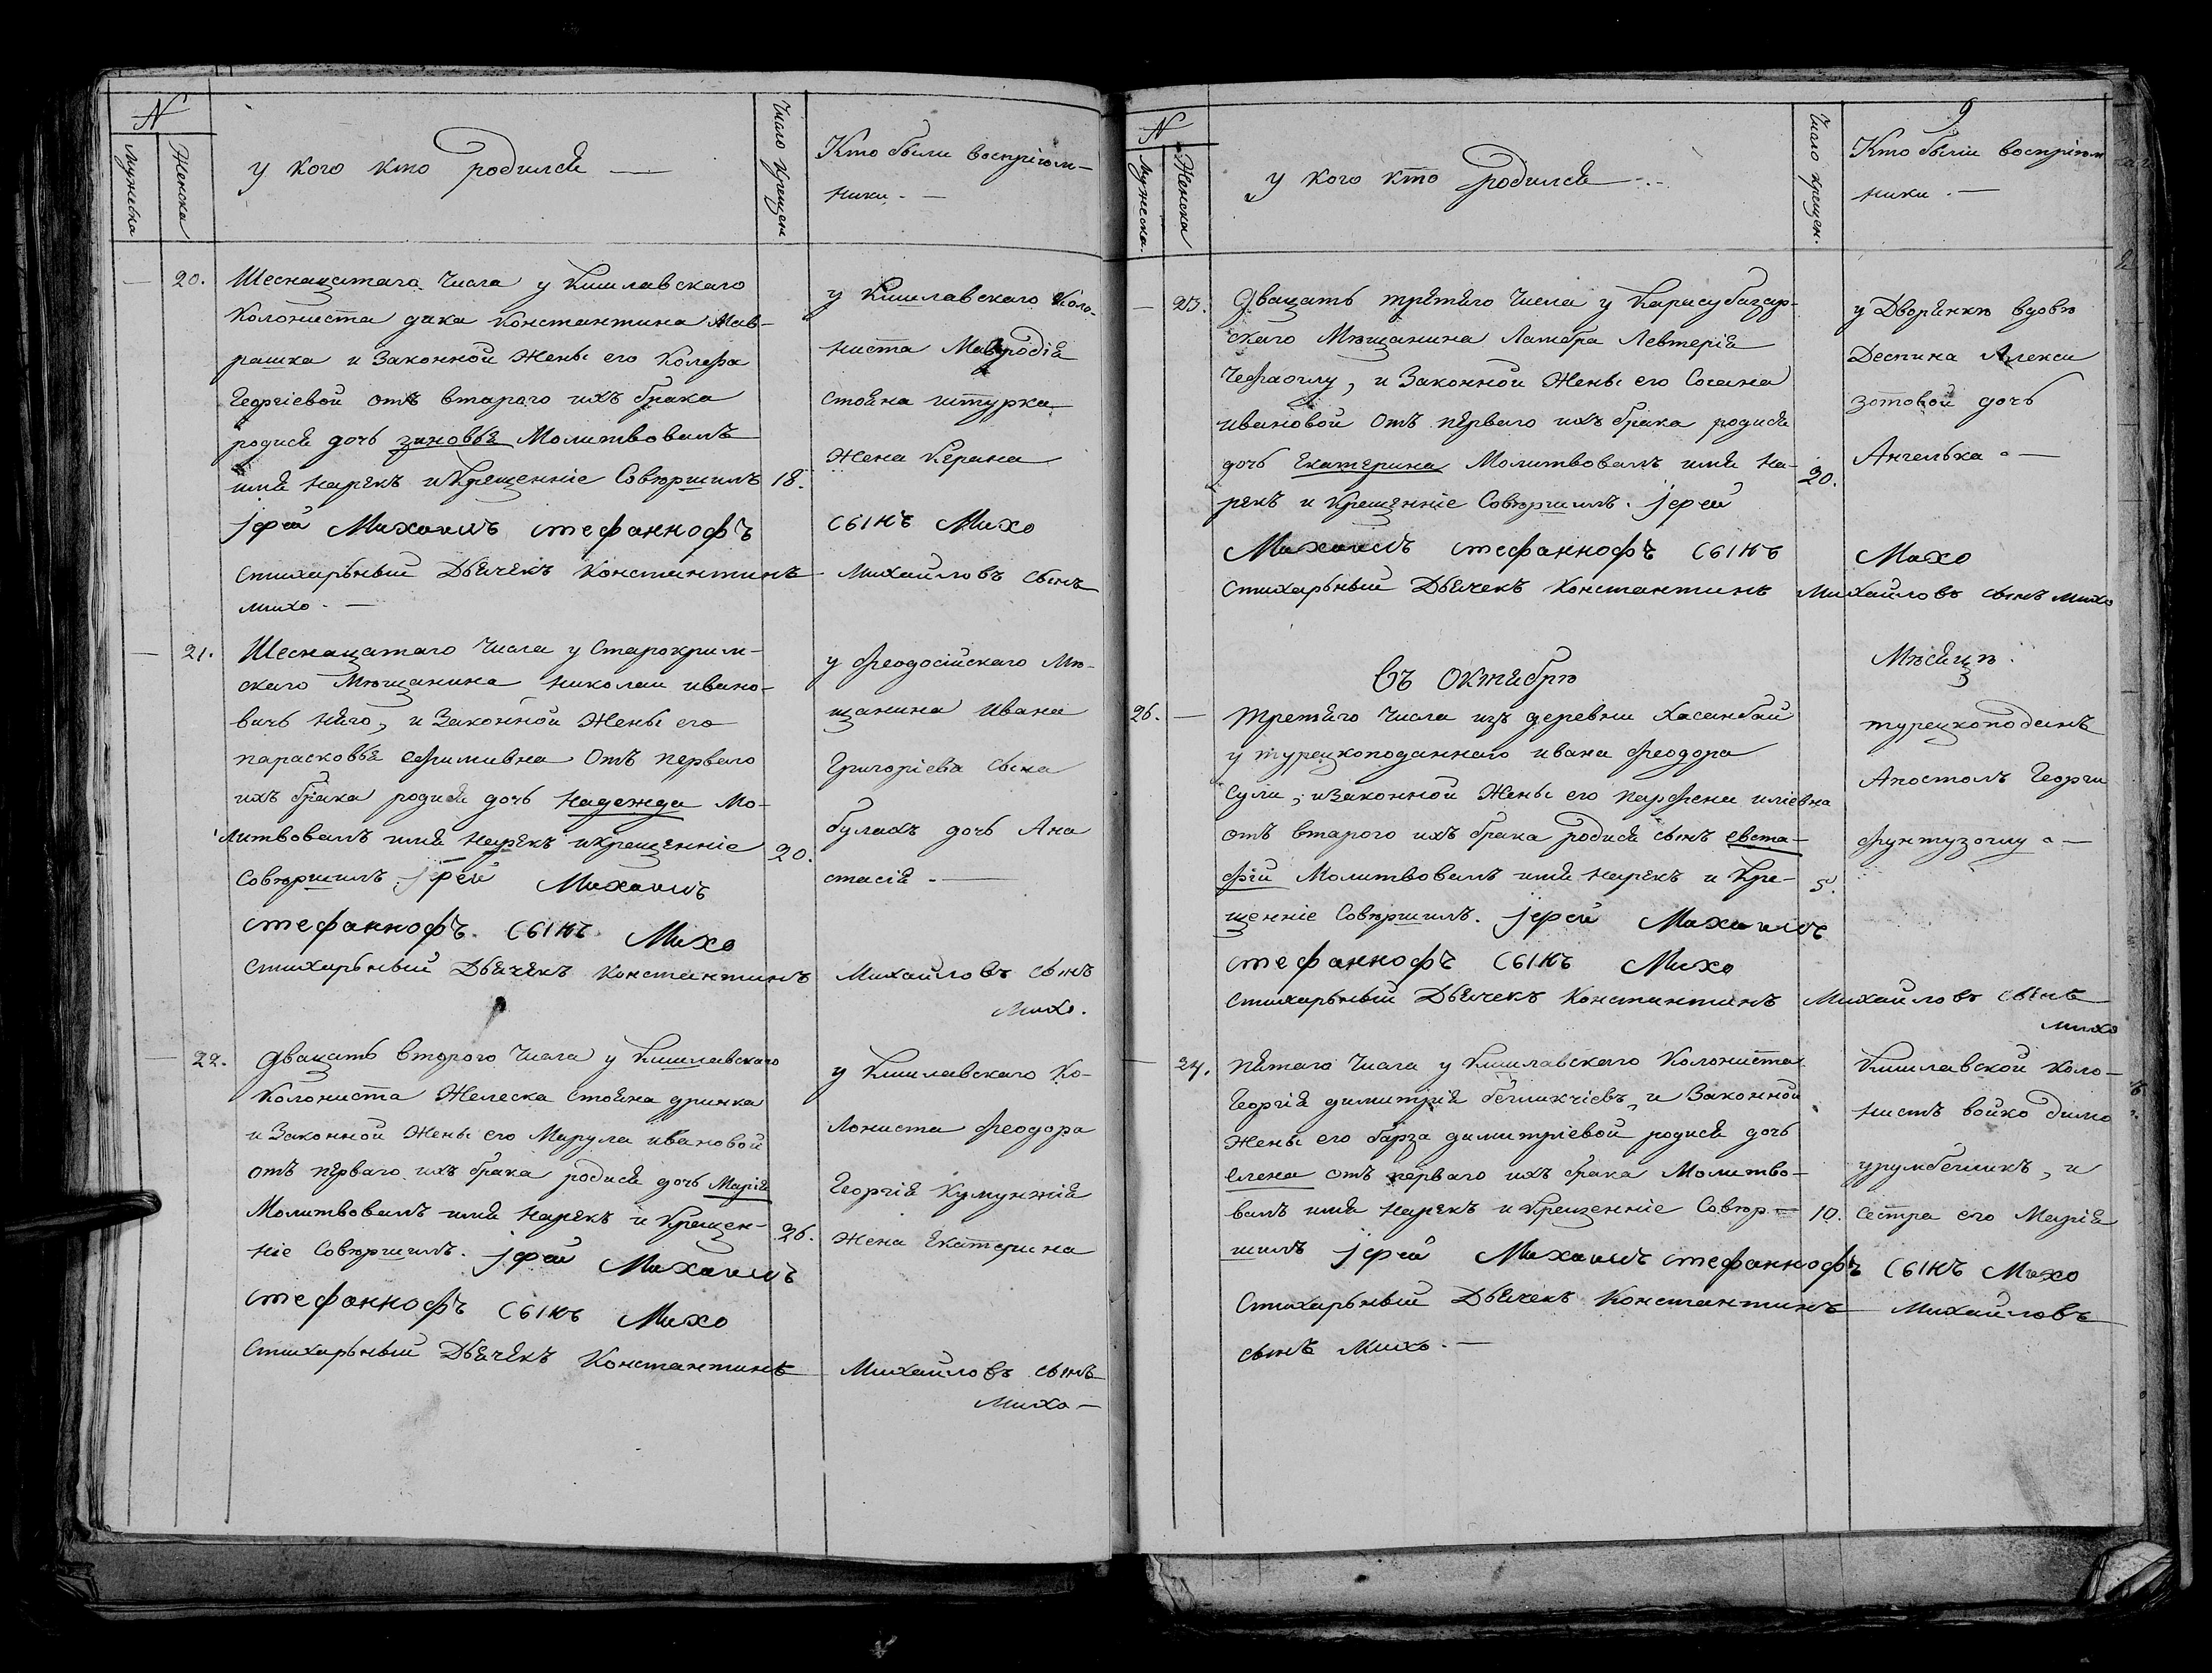 N
Мужеска
Женска
у кого кто родился —
Число Крещен.
Кто были восприэм-
ники. —
— 20. Шеснацатаго Числа у Кишлавскаго
Колониста дяка Константина Мав-
рашка и Законной Жены его Колефа
Георгіевой отъ втараго ихъ брака
родися дочь зиновья Молитвовалъ
имя нарекъ и Крещенніе Совершилъ 18.
іерей Михаилъ стефанноФъ
стихарьный Дьячекъ Константинъ
михо. —
у Кишлавскаго Коло-
ниста Мавродія
стояна штурка
Жена Керана
сынъ Михо
Михайловъ сынъ
— 21. Шеснацатаго Числа у Старокрим-
скаго Мѣщанина Николаи ивано-
вичь Няго, и Законной Жены его
парасковья ефимивна Отъ перваго
ихъ брака родися дочь Надежда Мо-
литвовалъ имя Нарекъ и Крещенніе 20.
Совершилъ іерей Михаилъ
стефанноФъ сынъ Михо
стихарьный Дьячекъ Константинъ
у Феодосійскаго Мѣ-
щанина Ивана
Григоріева сына
булахъ дочь Ана
стасія. —
Михайловъ сынъ
михо.
— 22. Двацать второго Числа у Кишлавскаго
Колониста Желеска Стояна дринка
и Законной Жены его Марула ивановой
отъ перваго ихъ брака родися дочь Марія
Молитвовалъ имя нарекъ и Крещен-
ніе Совершилъ. іерей Михаилъ 26.
стефанноФъ сынъ Михо
стихарьный Дьячекъ Константинъ
у Кишлавскаго Ко-
лониста Феодора
Георгія Кумунжія
жена Екатерина
Михайловъ сынъ
михо —
9
N
Мужеска.
Женска
у кого кто родился. —
Число крещен.
Кто были восприэм
ники. —
— 23. Двацать третяго Числа у Карасубазар-
скаго Мѣщанина Ламбра Левтерія
Чефаоглу, и Законной Жены его Согана
ивановой отъ перваго ихъ брака родися
дочь Екатерина Молитвовалъ имя на- 30.
рекъ и Крещенніе Совершилъ. іерей
Михаилъ стефанноФъ сынъ
стихарьный Дьячекъ Константинъ
у Дворянкѣ вдовѣ
Деспина Алекси
зотовой дочь
Ангелька. —
Михо
Михайловъ сынъ михо
Въ Октябрѣ
Мѣсяцѣ.
26. — Третяго Числа изъ деревни Хасанбай
у турецкоподаннаго ивана Феодора
Сули, и Законной Жены его парфена иліевна
отъ втараго ихъ брака родися сынъ евста-
фій Молитвовалъ имя нарекъ и Кре- 5.
щенніе Совершилъ. іерей Михаилъ
стефанноФъ сынъ Михо
стихарьный Дьячекъ Константинъ
турецкоподанъ
Апостолъ Георги
фунтузоглу. —
Михайловъ сынъ
михо
— 24. пятаго Числа у Кишлавскаго Колониста
Георгія димитрія бегликчіевъ, и Законной
Жены его барза димитріевой родися дочь
Елена отъ перваго ихъ брака Молитво-
валъ имя нарекъ и Крещенніе Совер- 10.
шилъ іерей Михаилъ стефанноФъ
Стихарьный Дьячекъ Константинъ
сынъ Михо. —
Кишлавской Коло-
нистъ войко димо
урумбегликъ, и
Сестра его Марія
сынъ Михо
Михайловъ